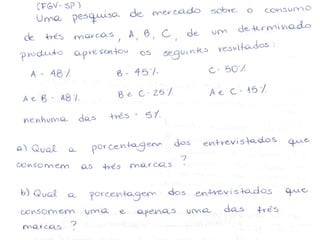 (FGV-SP)
Uma pesquisa de mercado sobre o consumo
de três marcas, A, B, C, de um determinado
produto apresentou os seguintes resultados:
A - 48% B - 45% C - 50%
A e B - 18% B e C - 25% A e C - 15%
nenhuma das três - 5%
a) Qual a porcentagem dos entrevistados que
consomem as três marcas?
b) Qual a porcentagem dos entrevistados que
consomem uma e apenas uma das três
marcas?